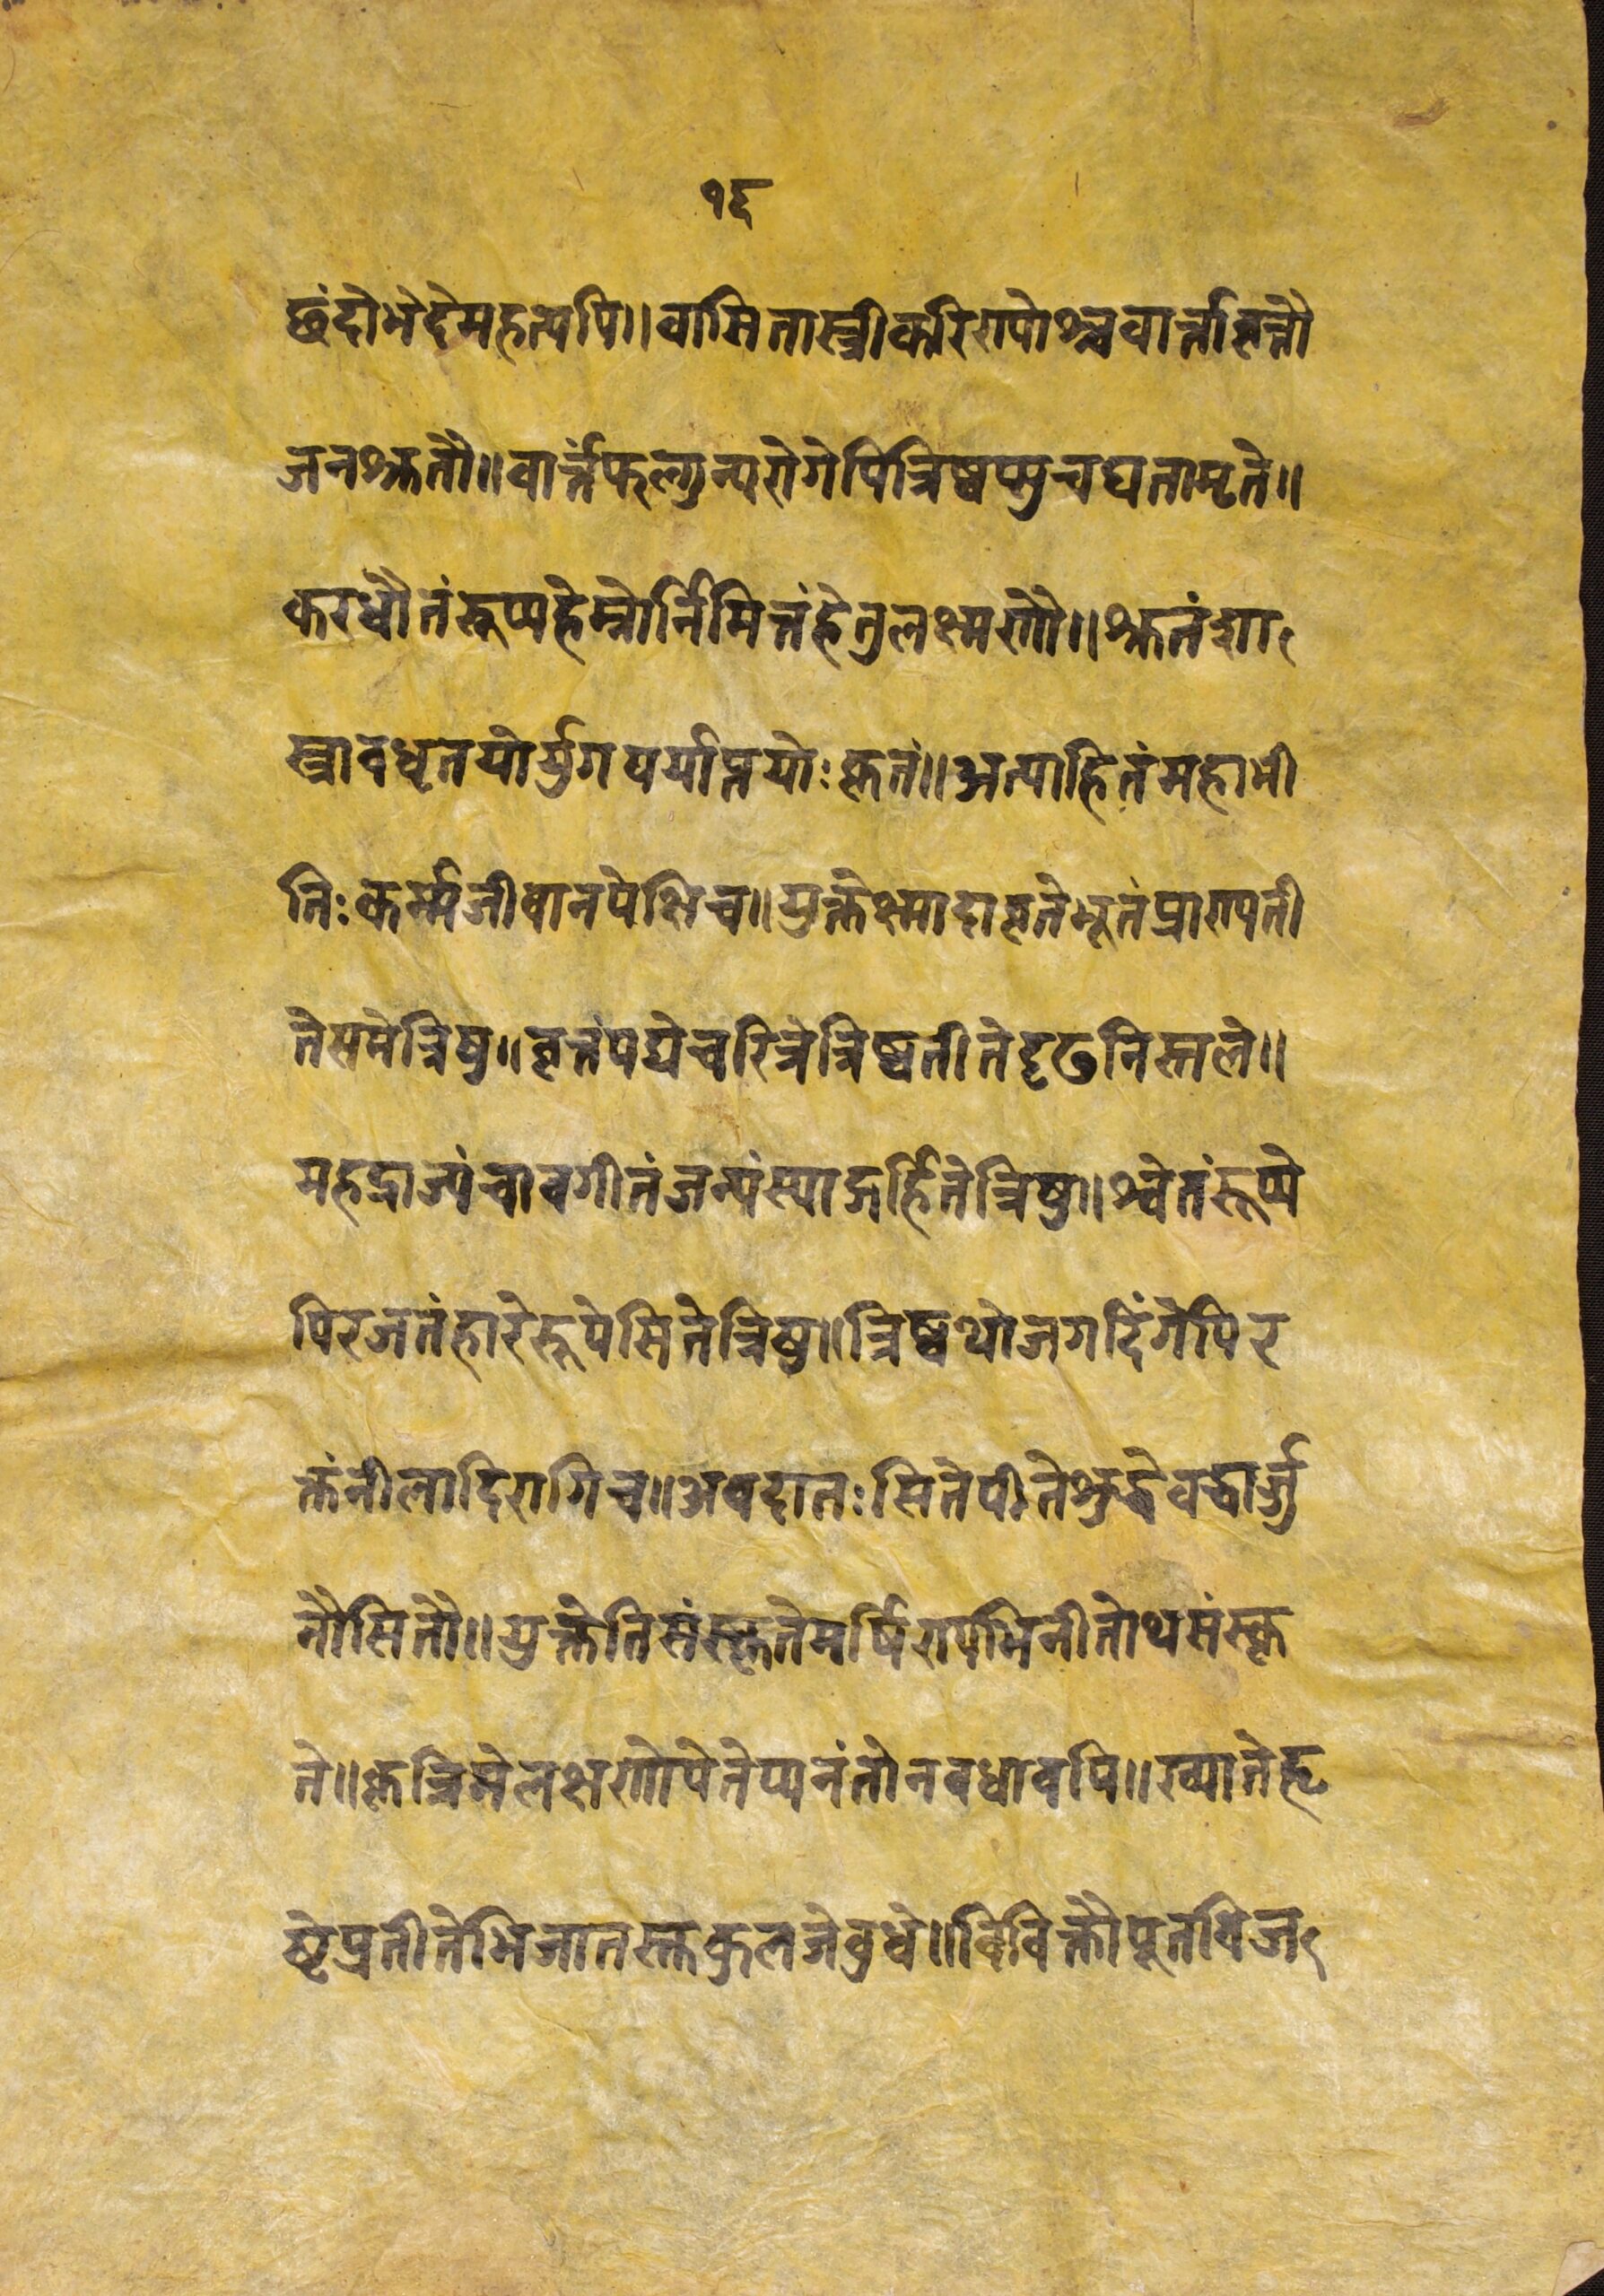 १६
छंदोभेदेमहत्यपि॥वासितास्त्रीकरिण्योश्चवार्त्तावृत्तौ
जनश्रुतौ॥वार्त्तंफल्गुन्यरोगेपित्रिष्वप्सुचघृतामृते॥
करधौतंरूप्यहेम्नोर्निमित्तंहेतुलक्ष्मणोः॥श्रुतंशा
स्त्रावधृतयोर्युगपर्याप्तयोःकृतं॥अत्याहितंमहाभी
तिःकर्म्मजीवानपेक्षिच॥युक्तेक्ष्मादावृतेभूतंप्राण्यती
तेसमेत्रिषु॥वृत्तंपद्येचरित्रेत्रिष्वतीतेदृढनिस्तले॥
महद्राज्यंचावगीतंजन्यंस्याद्गर्हितेत्रिषु॥श्वेतंरूप्ये
पिरजतंहारेरूपेसितेत्रिषु॥त्रिष्वथोजगदिंगेपिर
क्तंनीलादिरागिच॥अवदातःसितेपीतेशुद्धेवद्धार्जु
नौसितौ॥युक्तेतिसंस्कृतेमर्षिण्यभिनीतोथसंस्कृ
ते॥कृत्रिमेलक्षणोपेतेप्यनंतोनवधावपि॥ख्यातेहृ
ष्टेप्रतीतेभिजातस्तुकुलजेवुधे॥विविक्तौपूतविज